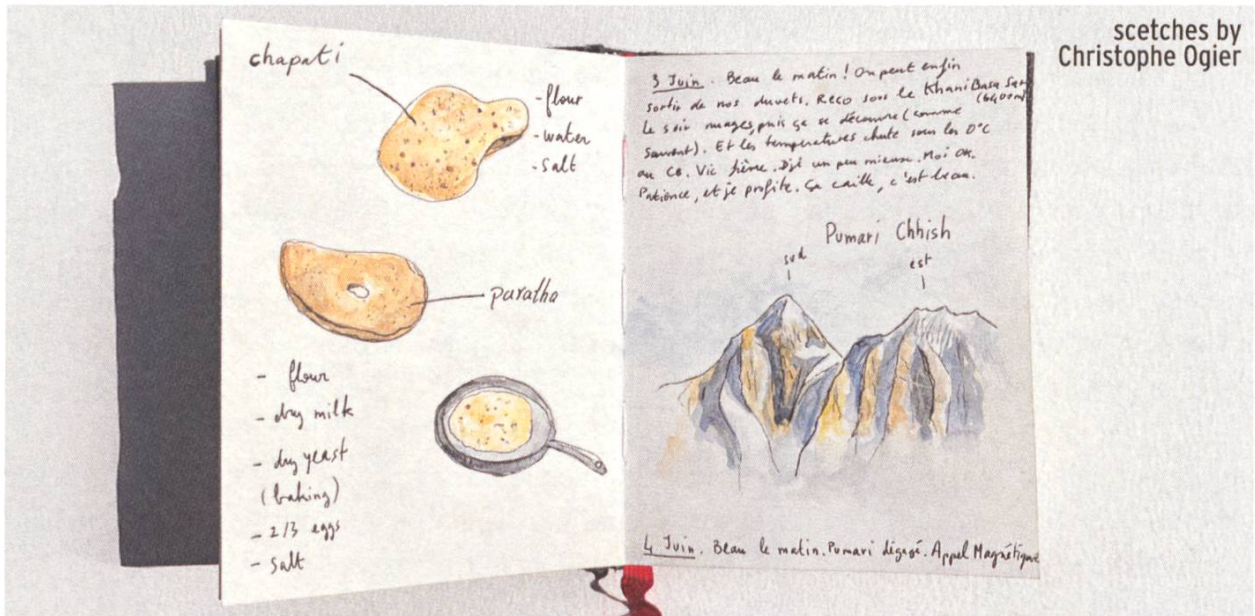 scetches by
Christophe Ogier
chapati
- flour
- water
- salt
paratha
- flour
- dry milk
- dry yeast
(baking)
- 2/3 eggs
- salt
3 Juin. Beau le matin! On peut enfin
sortir de nos duvets. Reco sous le Khani Basa Sar
(6400m)
Le soir nuages, puis ça se découvre (comme
souvent). Et les températures chute sous les 0°C
au CB. Vic fièvre. Déjà un peu mieux. Moi OK.
Patience, et je profite. Ça caille, c'est beau.
Pumari Chhish
sud
est
4 Juin. Beau le matin. Pumari dégagé. Appel Magnétique